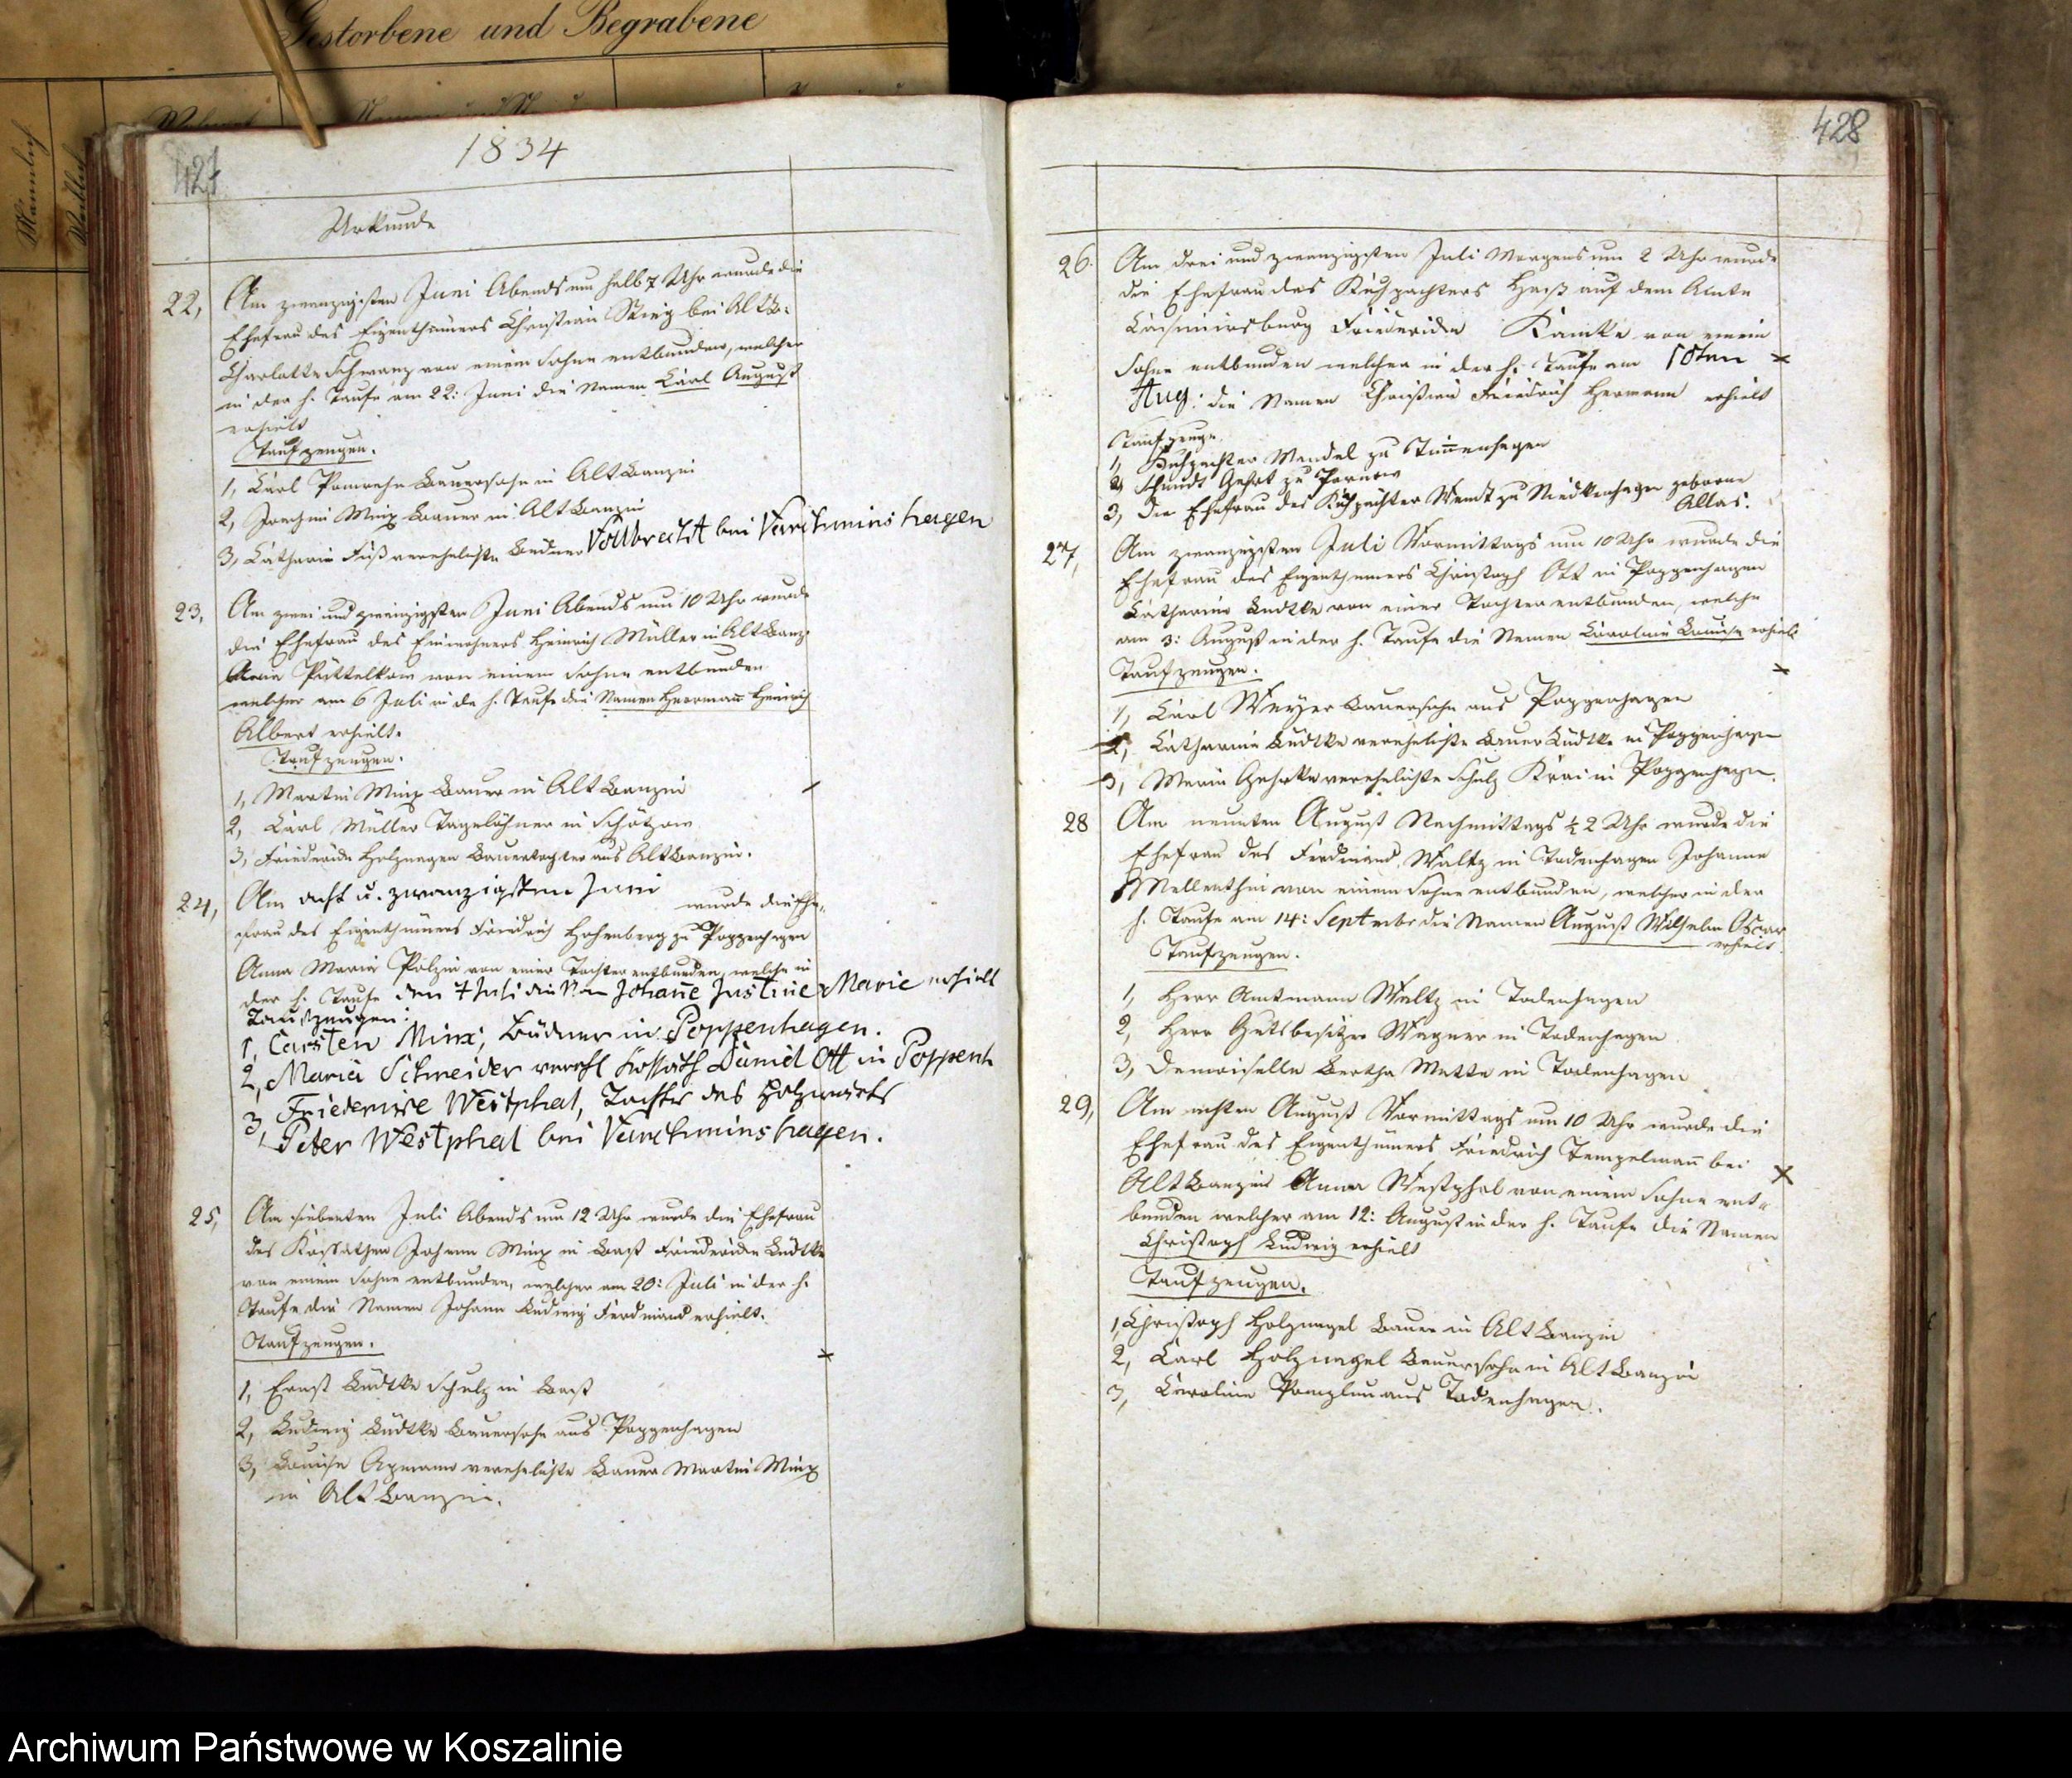 Gestorbene und Begrabene
Männlich
Weiblich
427
1834
Urkunde
22, Am zwanzigsten Juni Abends um halb 7 Uhr wurde die
Ehefrau des Eigenthümers Christian bei Alt B:
Charlotte Schwanz von einem Sohne entbunden, welcher
in der h. Taufe am 22: Juni die Namen Carl August
erhielt
Taufzeugen.
1, Carl Bauersohn in Alt Banzin
2, Joachim Minx Bauer in Alt Banzin
3, Catharin Fuß verehelichte Büdner Vollbrecht bei Varchminshagen
23, Am zwei und zwanzigsten Juni Abends um 10 Uhr wurde
die Ehefrau des Einwohners Heinrich Müller in Alt Banz.
Anna Püttelkow von einem Sohne entbunden
welcher am 6 Juli in der h. Taufe die Namen Herrmann Heinrich
Albert erhielt.
Taufzeugen.
1, Martin Minx Bauer in Alt Banzin
2, Carl Müller Tagelöhner in Schötzow
3, Friederike Holznagen Bauertochter aus Alt Banzin.
24, Am acht u. zwanzigsten Juni wurde die Ehe-
frau des Eigenthümers Friedrich Hohenberg zu Poppenhagen
Anna Maria Polzin von einer Tochter entbunden, welche in
der h. Taufe den 7 Juli die Nam Johanne Justine Marie erhielt
Taufzeugen:
1, Carsten Minx, Büdner in Poppenhagen.
2, Maria Schneider verehl Kossath Daniel Ott in Poppenh
3, Friederike Westphal, Tochter des Holzwärts
Peter Westphal bei Varchminshagen.
25, Am siebenten Juli Abends um 12 Uhr wurde die Ehefrau
des Kossathen Johann Minx in Bast Friederike Lüdtke
von einem Sohne entbunden, welcher am 20: Juli in der h.
Taufe die Namen Johann Ludwig Ferdinand erhielt.
Taufzeugen.
1, Ernst Lüdtke Schulz in Bast
2, Ludwig Lüdtke Bauersohn aus Poppenhagen
3, Louise verehelichte Bauer Martin Minx
in Alt Banzin.
428
26. Am drei und zwanzigsten Juli Morgens um 2 Uhr wurde
die Ehefrau des Kuhpachters Haß auf dem Amte
Casimirsburg Friederike Kamke von einem
Sohne entbunden welcher in der h. Taufe am 10ten
Aug: die Namen Christian Friedrich Hermann erhielt
Taufzeuge.
1, Kuhpachter Mandel zu Timmenhagen
2, Schmidt Gehrt zu Parnow
3, Die Ehefrau des Kuhpächter Wendt zu Niedkenhagen geborne
27, Am zwanzigsten Juli Vormittags um 10 Uhr wurde die
Ehefrau des Eigenthümers Christoph Ott in Poppenhagen
Catharine Lüdtke von einer Tochter entbunden, welche
am 3: August in der h. Taufe die Namen Caroline Louise erhielt
Taufzeugen.
1, Carl Meyer Bauersohn aus Poppenhagen
2, Catharine Lüdtke verehelichte Bauer Lüdtke in Poppenhagen
3, Marie Gehrke verehelichte Schulz Krai in Poppenhagen.
28 Am neunten August Nachmittags ½ 2 Uhr wurde die
Ehefrau des Ferdinand Waltz in Todenhagen Johanne
Mellenthin von einem Sohne entbunden, welcher in der
h. Taufe am 14: Septembr die Namen August Wilhelm Oscar
erhielt.
Taufzeugen.
1, Herr Amtmann Waltz in Todenhagen
2, Herr Gutsbesitzer Wagner in Todenhagen
3, Demoiselle Bertha Matte in Todenhagen
29, Am achten August Vormittags um 10 Uhr wurde die
Ehefrau des Eigenthümers Friedrich Tempelmann bei
Alt Banzin Anna Westphal von einem Sohne ent-
bunden welcher am 12: August in der h. Taufe die Namen
Christoph Ludwig erhielt
Taufzeugen.
1, Christoph Holznagel Bauer in Alt Banzin
2, Carl Holznagel Bauersohn in Alt Banzin
3, Caroline Pomplun aus Todenhagen.
Archiwum Państwowe w Koszalinie